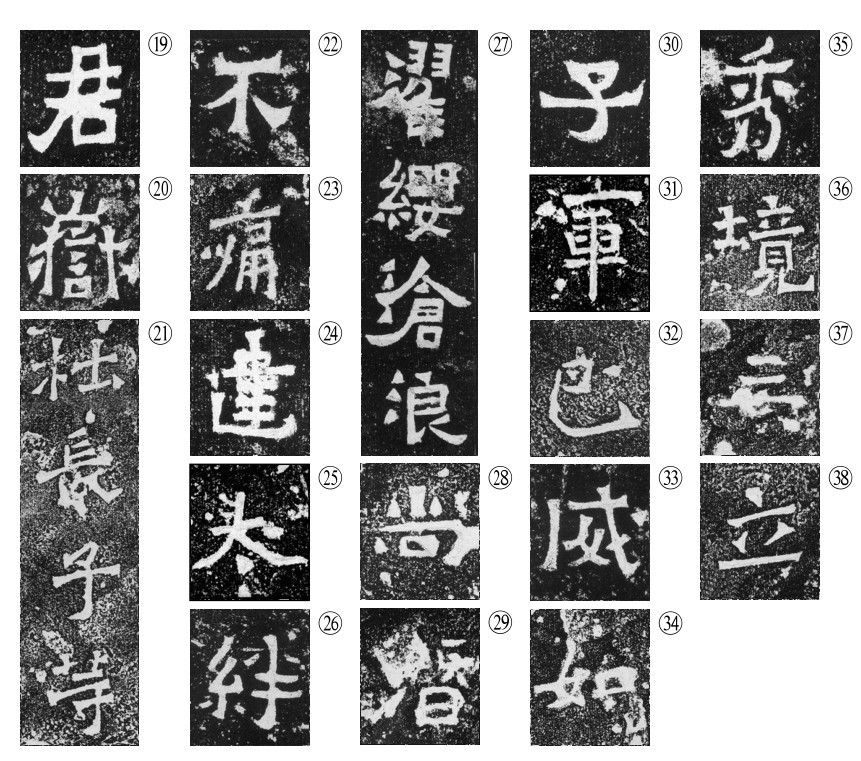 ⑲ 君
⑳ 嶽
㉑ 壯長子等
㉒ 不
㉓ 痛
㉔ 達
㉕ 太
㉖ 絆
㉗ 濯纓滄浪
㉘ 尚
㉙
㉚ 子
㉛ 軍
㉜
㉝ 威
㉞ 如
㉟ 秀
㊱ 境
㊲
㊳ 立